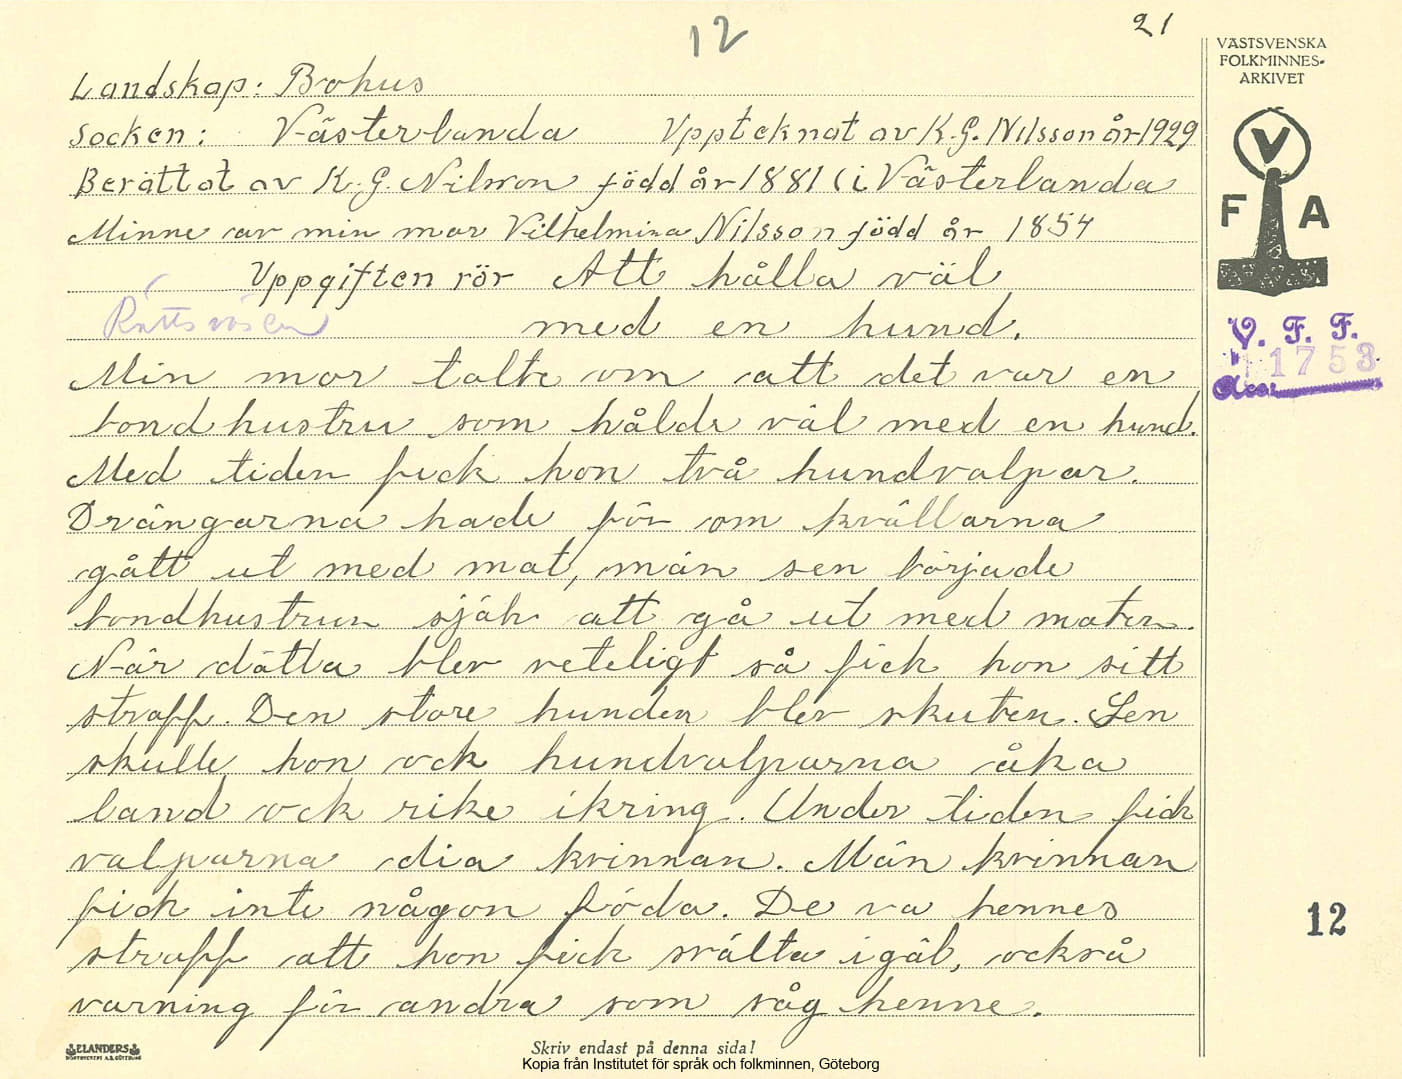 12
21
VÄSTSVENSKA
FOLKMINNES-
ARKIVET
V
F A
V. F. F.
1753
Landskap: Bohus
Socken: Västerlanda Upptecknat av K.G. Nilsson år 1929
Berättat av K.G. Nilsson född år 1881 i Västerlanda
Minne av min mor Vilhelmina Nilsson född år 1854
Uppgiften rör Att hålla väl
Rättsväsen
med en hund.
Min mor talte om att det var en
bondhustru som hålde väl med en hund.
Med tiden fick hon två hundvalpar.
Drängarna hade för om kvällarna
gått ut med mat, män sen började
bondhustrun själv att gå ut med maten.
När dätta blev veteligt så fick hon sitt
straff. Den store hunden blev skuten. Sen
skulle hon ock hundvalparna åka
land ock rike ikring. Under tiden fick
valparna dia kvinnan. Män kvinnan
fick inte någon föda. De va hennes
straff att hon fick svälta igäl, också
varning för andra som såg henne.
12
ELANDERS
Skriv endast på denna sida!
Kopia från Institutet för språk och folkminnen, Göteborg